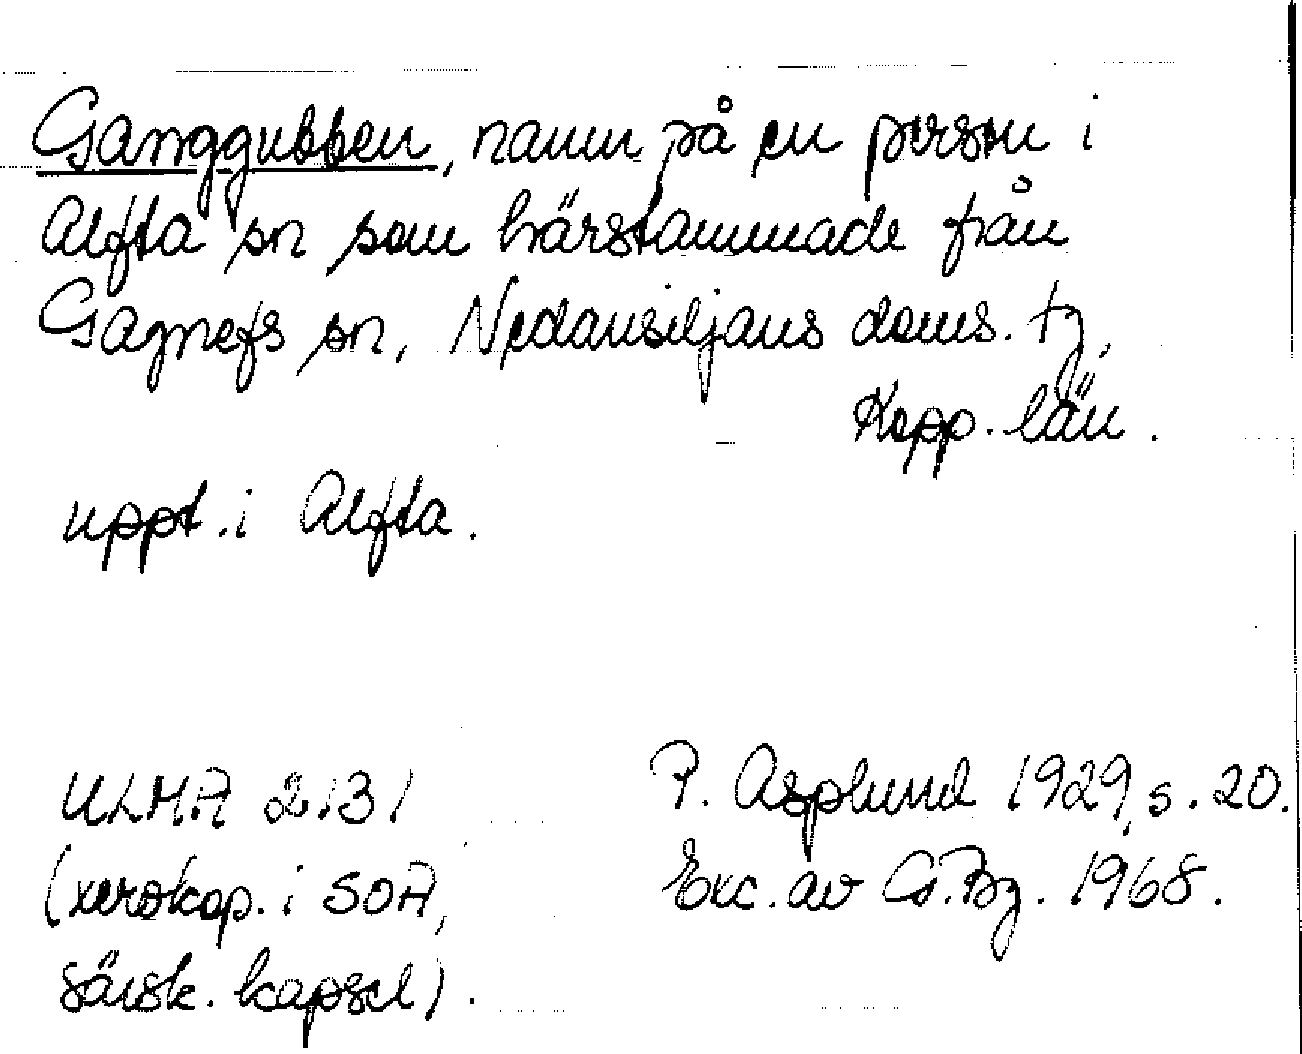 Ganggubben, namn på en person i
Alfta sn som härstammade från
Gagnefs sn, Nedansiljans doms. tg,
Kopp. län.
uppt. i Alfta.
ULMA 2131
(xerokop. i SOA,
särsk. kapsel).
P. Asplund 1929, s. 20.
Exc. av G.Bg. 1968.